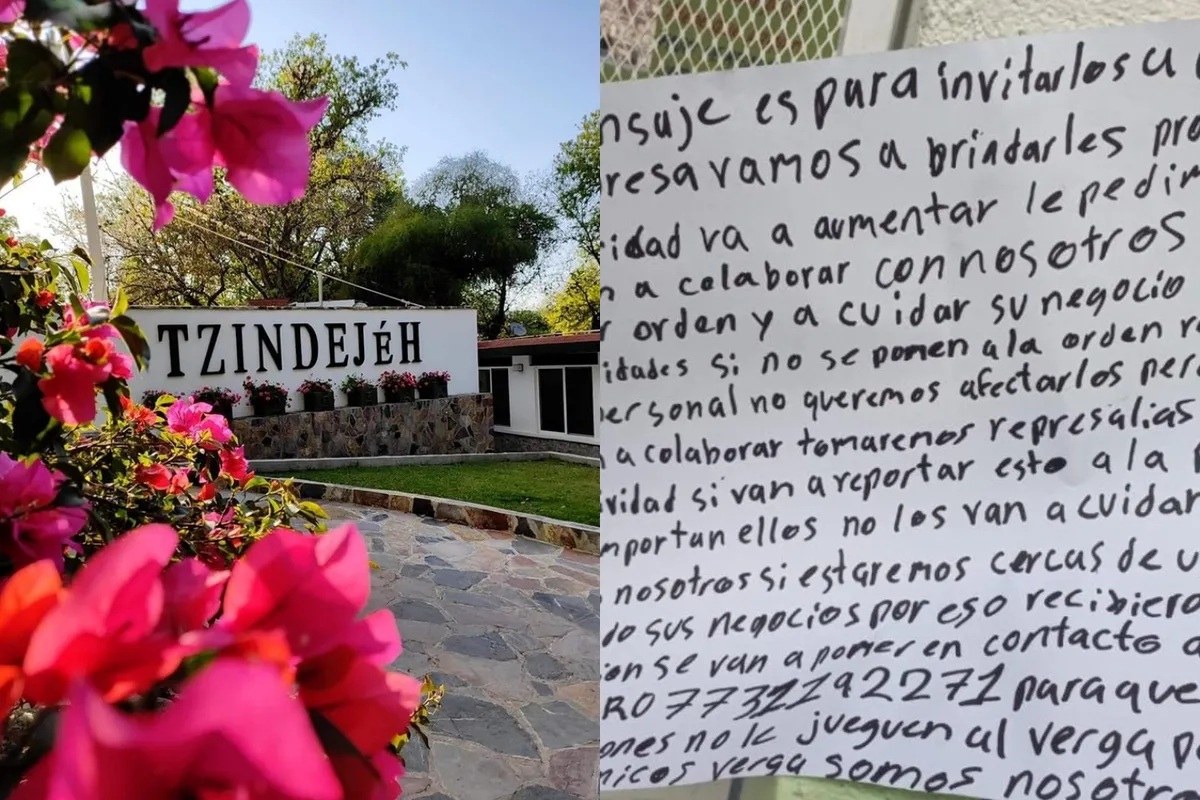 TZINDEJéH
nsaje es para invitarlos a
resa vamos a brindarles pro
idad va a aumentar le pedim
a colaborar con nosotros
orden y a cuidar su negocio
idades si no se ponen a la orden r
personal no queremos afectarlos pero
a colaborar tomarenos represalias
vidad si van a reportar esto a la
mportan ellos no los van a cuidar
nosotros si estaremos cercas de u
do sus negocios por eso recibiero
ion se van a poner en contacto a
RO 7731292271 para que
ones no le jueguen al verga p
nicos verga somos nosotro